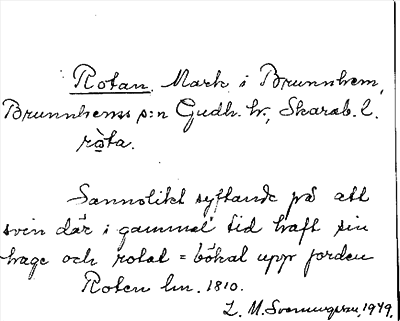 Rotan. Mark i Brunnhem,
Brunnhems s:n Gudh. hr., Skarab. l.
rota.
Sannolikt syftande på att
svin där i gammal tid haft sin
hage och rotat = bökat upp jorden
Roten lm. 1810.
L. M. Svenungsson, 1949.